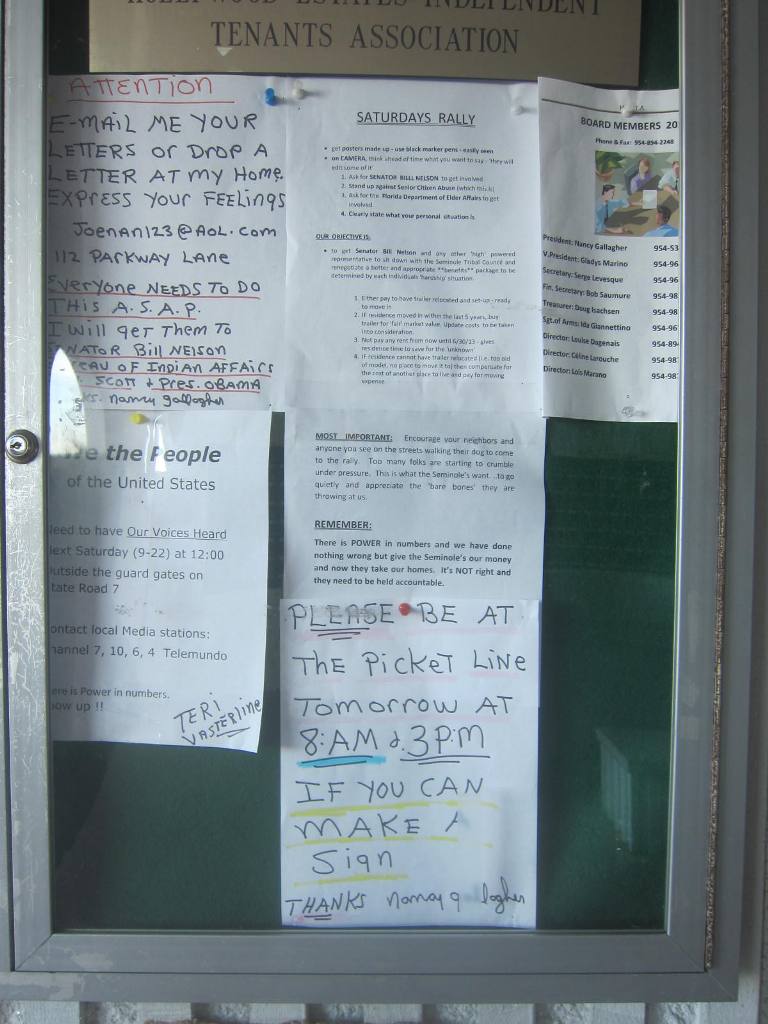 HOLLYWOOD ESTATES INDEPENDENT
TENANTS ASSOCIATION
ATTENTION
E-MAIL ME YOUR
LETTERS OR DROP A
LETTER AT MY HOME.
EXPRESS YOUR FEELINGS
JOENAN123@AOL.COM
112 PARKWAY LANE
EVERYONE NEEDS TO DO
THIS A.S.A.P.
I WILL GET THEM TO
NATOR Bill NELSON
EAU OF INDIAN AFFAIRS
SCOTT & PRES. OBAMA
KS. nancy gallagher
SATURDAYS RALLY
• get posters made up - use black marker pens - easily seen
• on CAMERA, think ahead of time what you want to say - 'they will
edit some of it'
1. Ask for SENATOR BILL NELSON to get involved
2. Stand up against Senior Citizen Abuse (which this is)
3. Ask for the Florida Department of Elder Affairs to get
involved
4. Clearly state what your personal situation is
OUR OBJECTIVE IS:
• to get Senator Bill Nelson and any other 'high' powered
representative to sit down with the Seminole Tribal Council and
renegotiate a better and appropriate **benefits** package to be
determined by each individuals 'hardship' situation.
1. Either pay to have trailer relocated and set-up - ready
to move in
2. IF residence moved in within the last 5 years, buy
trailer for 'fair' market value. Update costs to be taken
into consideration.
3. Not pay any rent from now until 6/30/13 - gives
residence time to save for the 'unknown'
4. IF residence cannot have trailer relocated (i.e. too old
of model, no place to move it to) then compensate for
the cost of another place to live and pay for moving
expense.
MOST IMPORTANT: Encourage your neighbors and
anyone you see on the streets walking their dog to come
to the rally. Too many folks are starting to crumble
under pressure. This is what the Seminole's want...to go
quietly and appreciate the 'bare bones' they are
throwing at us.
REMEMBER:
There is POWER in numbers and we have done
nothing wrong but give the Seminole's our money
and now they take our homes. It's NOT right and
they need to be held accountable.
BOARD MEMBERS 20
Phone & Fax: 954-894-2248
President: Nancy Gallagher 954-53
V.President: Gladys Marino 954-96
Secretary: Serge Levesque 954-96
Fin. Secretary: Bob Saumure 954-98
Treasurer: Doug Isachsen 954-98
Sgt.of Arms: Ida Giannettino 954-96
Director: Louise Dagenais 954-894
Director: Céline Larouche 954-98
Director: Lois Marano 954-98
We the People
of the United States
eed to have Our Voices Heard
ext Saturday (9-22) at 12:00
utside the guard gates on
tate Road 7
ontact local Media stations:
hannel 7, 10, 6, 4 Telemundo
ere is Power in numbers.
ow up !!
TERI
VASTERline
PLEASE BE AT
THE PICKET LINE
TOMORROW AT
8:AM & 3P.M
IF YOU CAN
MAKE A
Sign
THANKS nancy g llagher